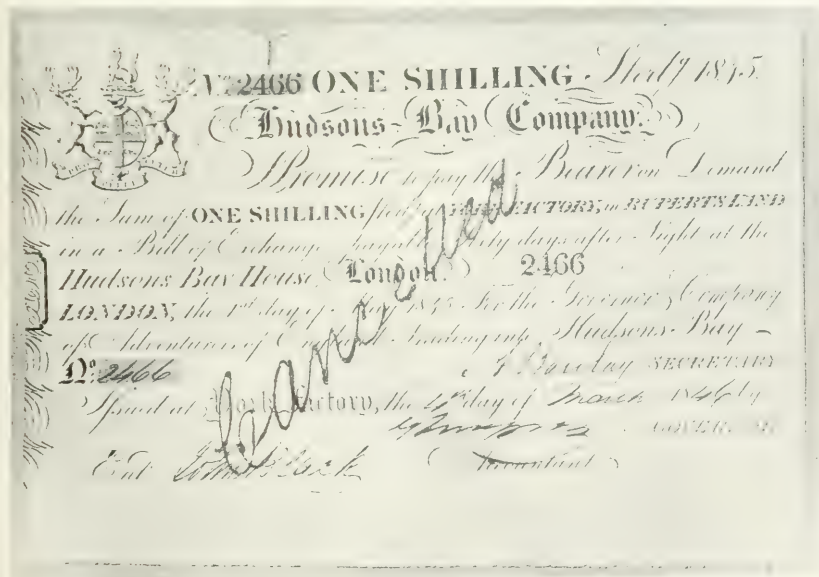 No. 2466 ONE SHILLING Sterlg. 1845.
Hudsons-Bay Company.
Promise to pay the Bearer on Demand
the Sum of ONE SHILLING FACTORY, in RUPERTS LAND
in a Bill of Exchange payable days after Sight at the
Hudsons Bay House, London. 2466
LONDON, the 1st day of For the Governor & Company
of Adventurers of trading into Hudsons-Bay
No. 2466 Barclay SECRETARY
Issued at York Factory, the day of March 1846 by
GOVERNOR
Ent. Accountant
Cancelled